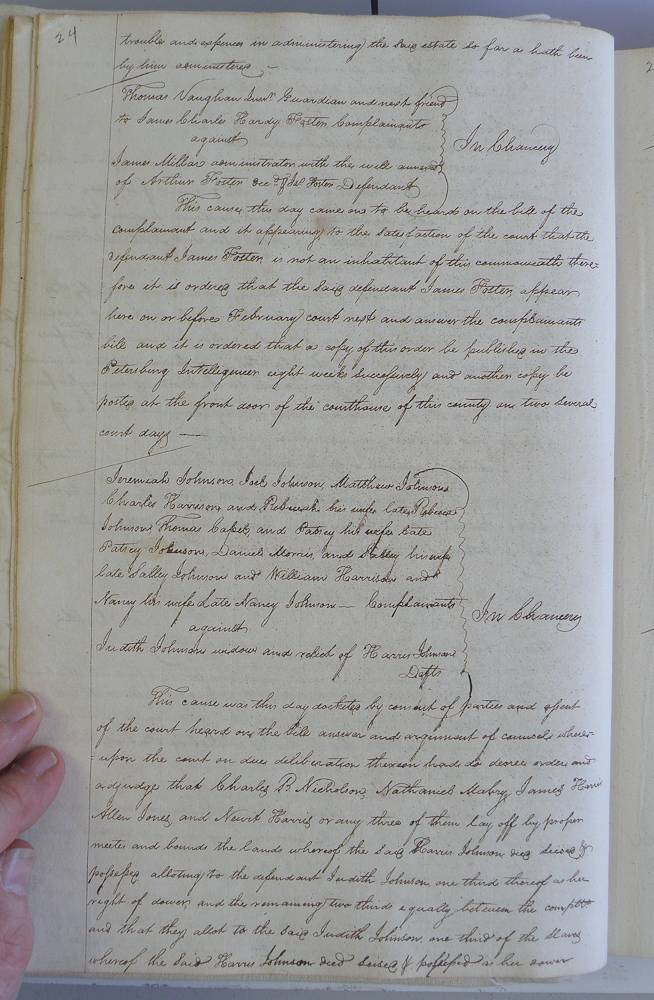 24
trouble and expences in administering the said estate so far as hath been
by him administered —
Thomas Vaughan Junr Guardian and next friend
to James Charles Hardy Foster Complainants
against
James Millar administrator with the will annexed
of Arthur Foster decd & Jas Foster Defendant
In Chancery
This cause this day came on to be heard on the bill of the
complainant and it appearing to the satisfaction of the court that the
defendant James Foster is not an inhabitant of this commonwealth there=
fore it is ordered that the said defendant James Foster appear
here on or before February court next and answer the complainants
bill and it is ordered that a copy of this order be published in the
Petersburg Intelligencer eight weeks successively and another copy be
posted at the front door of the courthouse of this county on two several
court days —
Jeremiah Johnson, Joel Johnson, Matthew Johnson
Charles Harrison and Rebecah his wife late Rebecca
Johnson Thomas and Patsey his wife late
Patsey Johnson, Daniel Morris, and Salley his wife
late Salley Johnson and William Harrison and
Nancy his wife Late Nancy Johnson — Complainants
against
Judith Johnson widow and relict of Harris Johnson
Defts
In Chancery
This cause was this day docketed by consent of parties and assent
of the court heard on the bill answer and argument of councils where=
=upon the court on due deliberation thereon had do decree order and
adjudge that Charles B. Nicholson, Nathaniel Mabry, James Harris
Allen Jones, and Newit Harris or any three of them lay off by proper
meets and bounds the lands whereof the said Harris Johnson died seised &
possessed alloting to the defendant Judith Johnson, one third thereof as her
right of dower, and the remaining two thirds equally between the complts
and that they allot to the said Judith Johnson, one third of the slaves
whereof the said Harris Johnson died seised & possessed as her dower